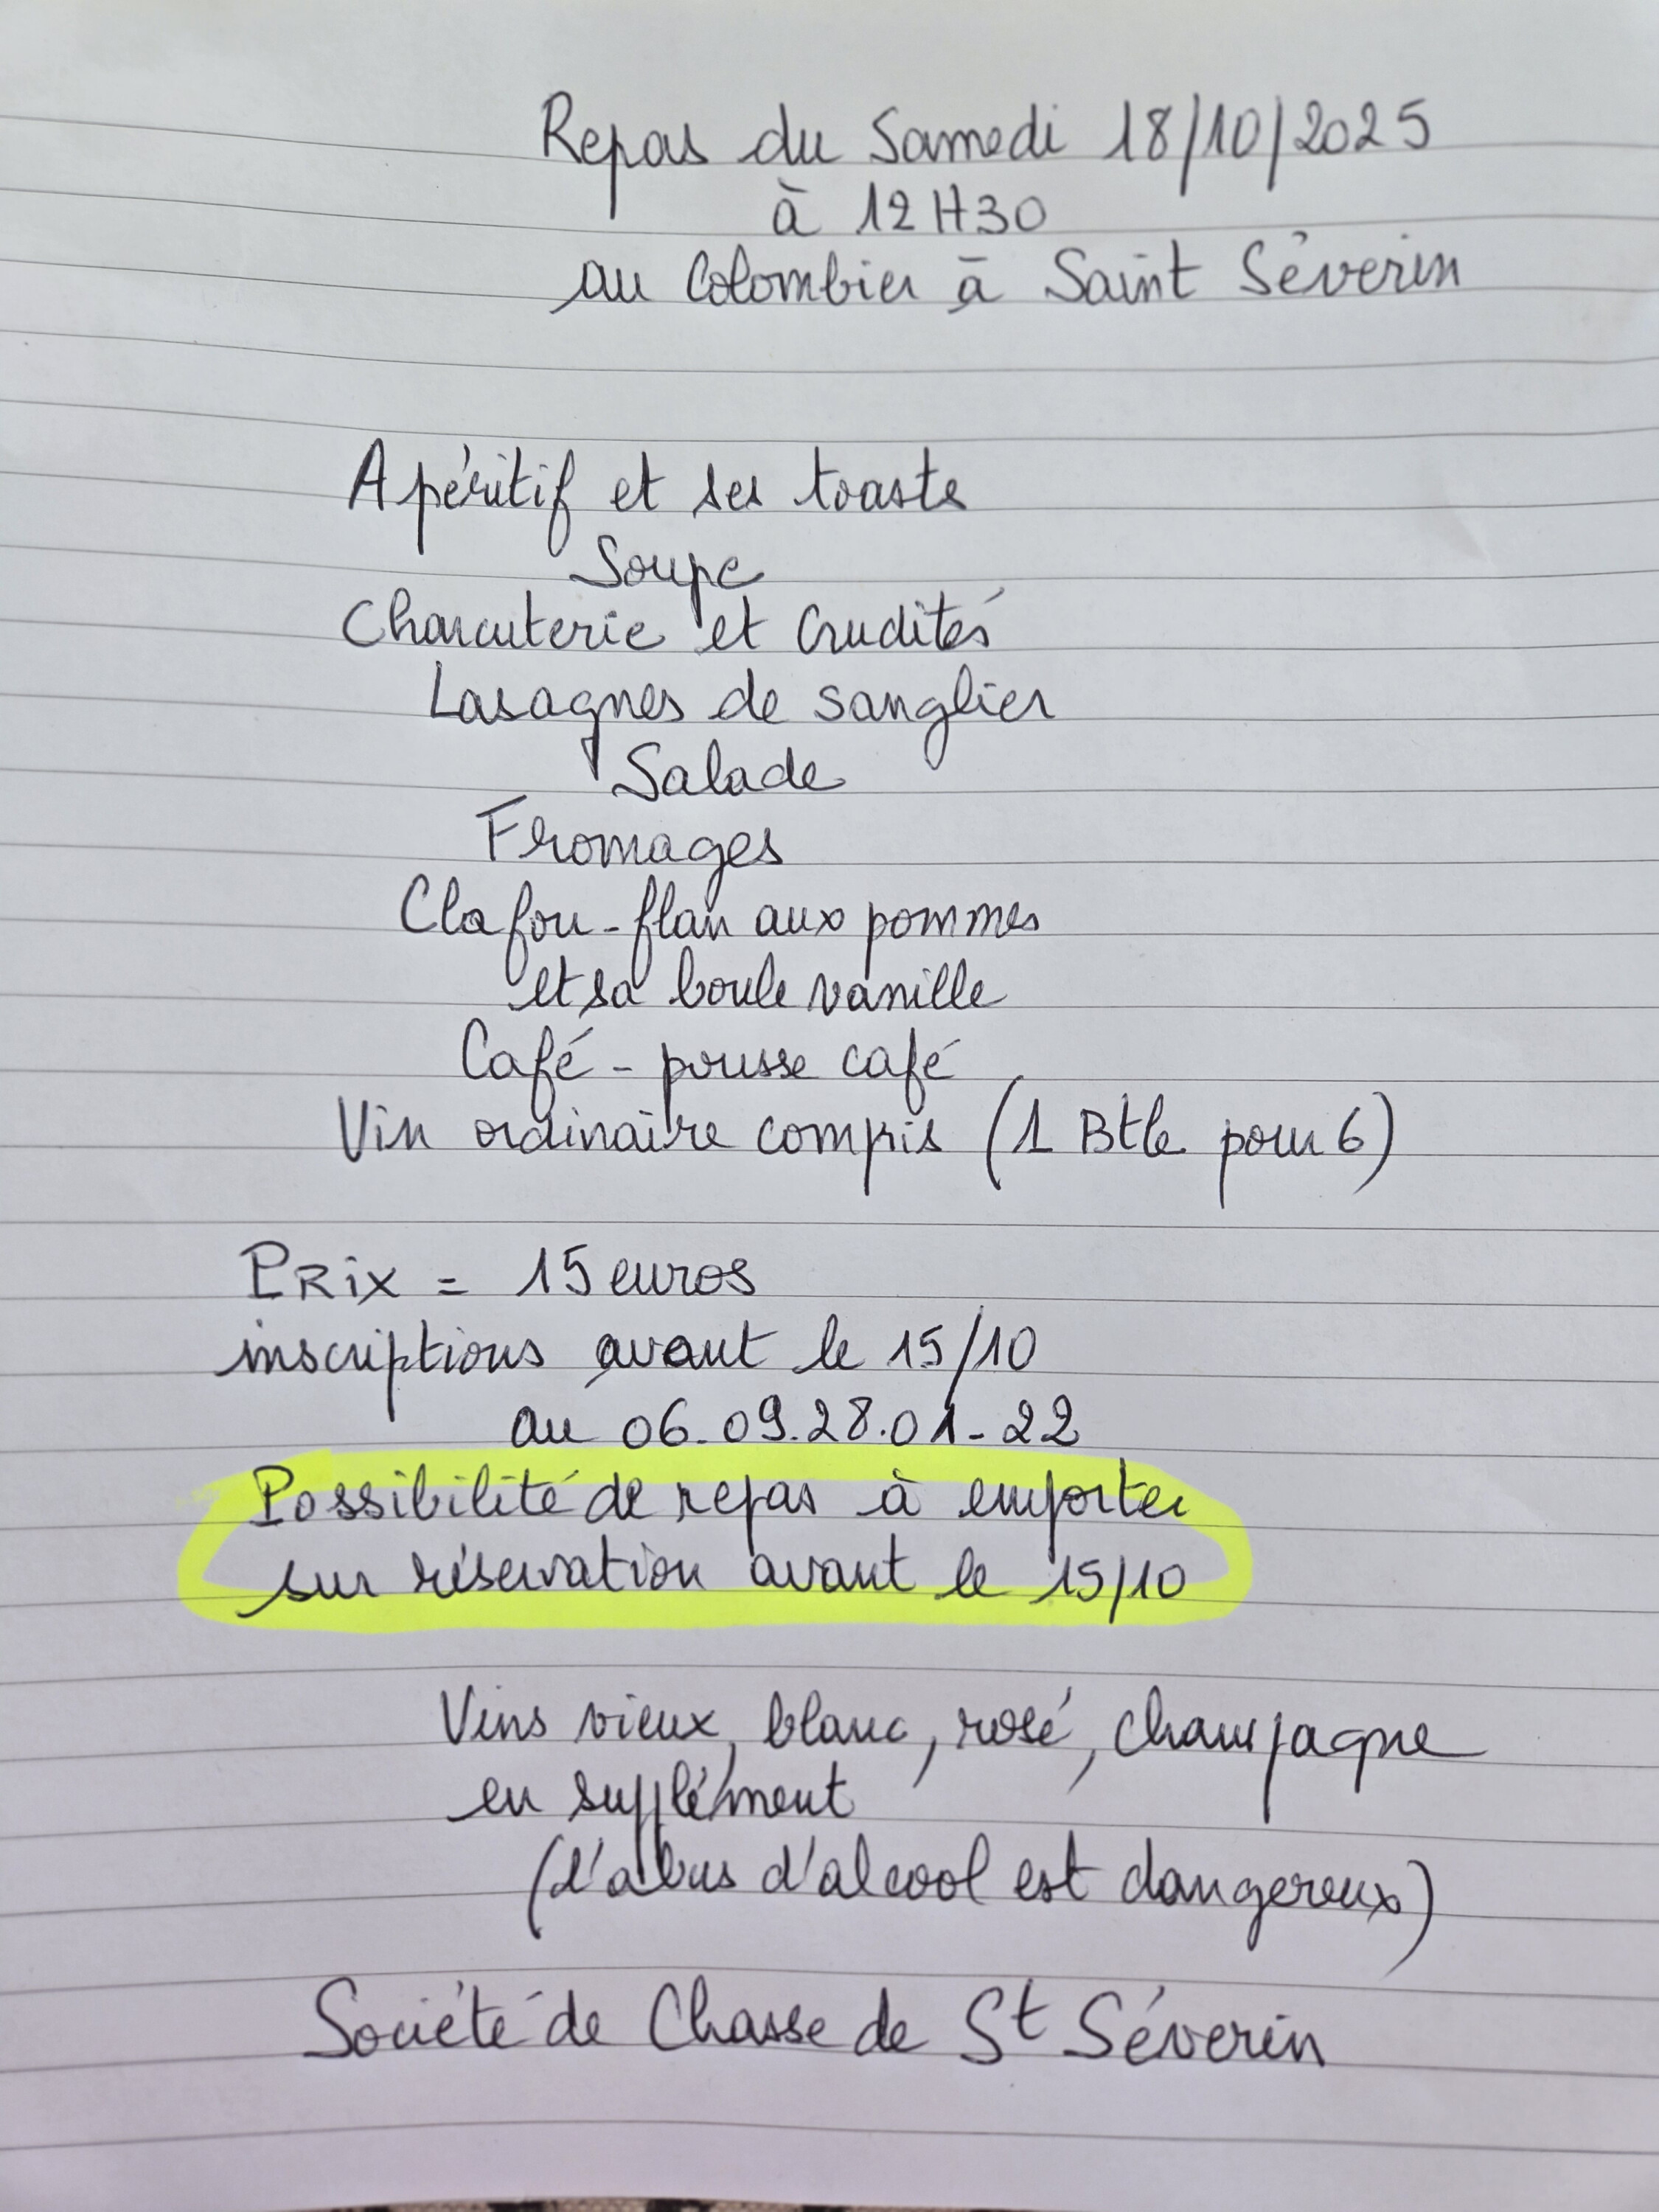 Repas du Samedi 18/10/2025
à 12H30
au Colombier à Saint Séverin
Apéritif et ses toasts
Soupe
Charcuterie et Crudités
Lasagnes de sanglier
Salade
Fromages
Clafou-flan aux pommes
et sa boule vanille
Café - pousse café
Vin ordinaire compris (1 Btle pour 6)
PRix = 15 euros
inscriptions avant le 15/10
au 06.09.28.01-22
Possibilité de repas à emporter
sur réservation avant le 15/10
Vins vieux, blanc, rosé, champagne
en supplément
(l'abus d'alcool est dangereux)
Société de Chasse de St Séverin